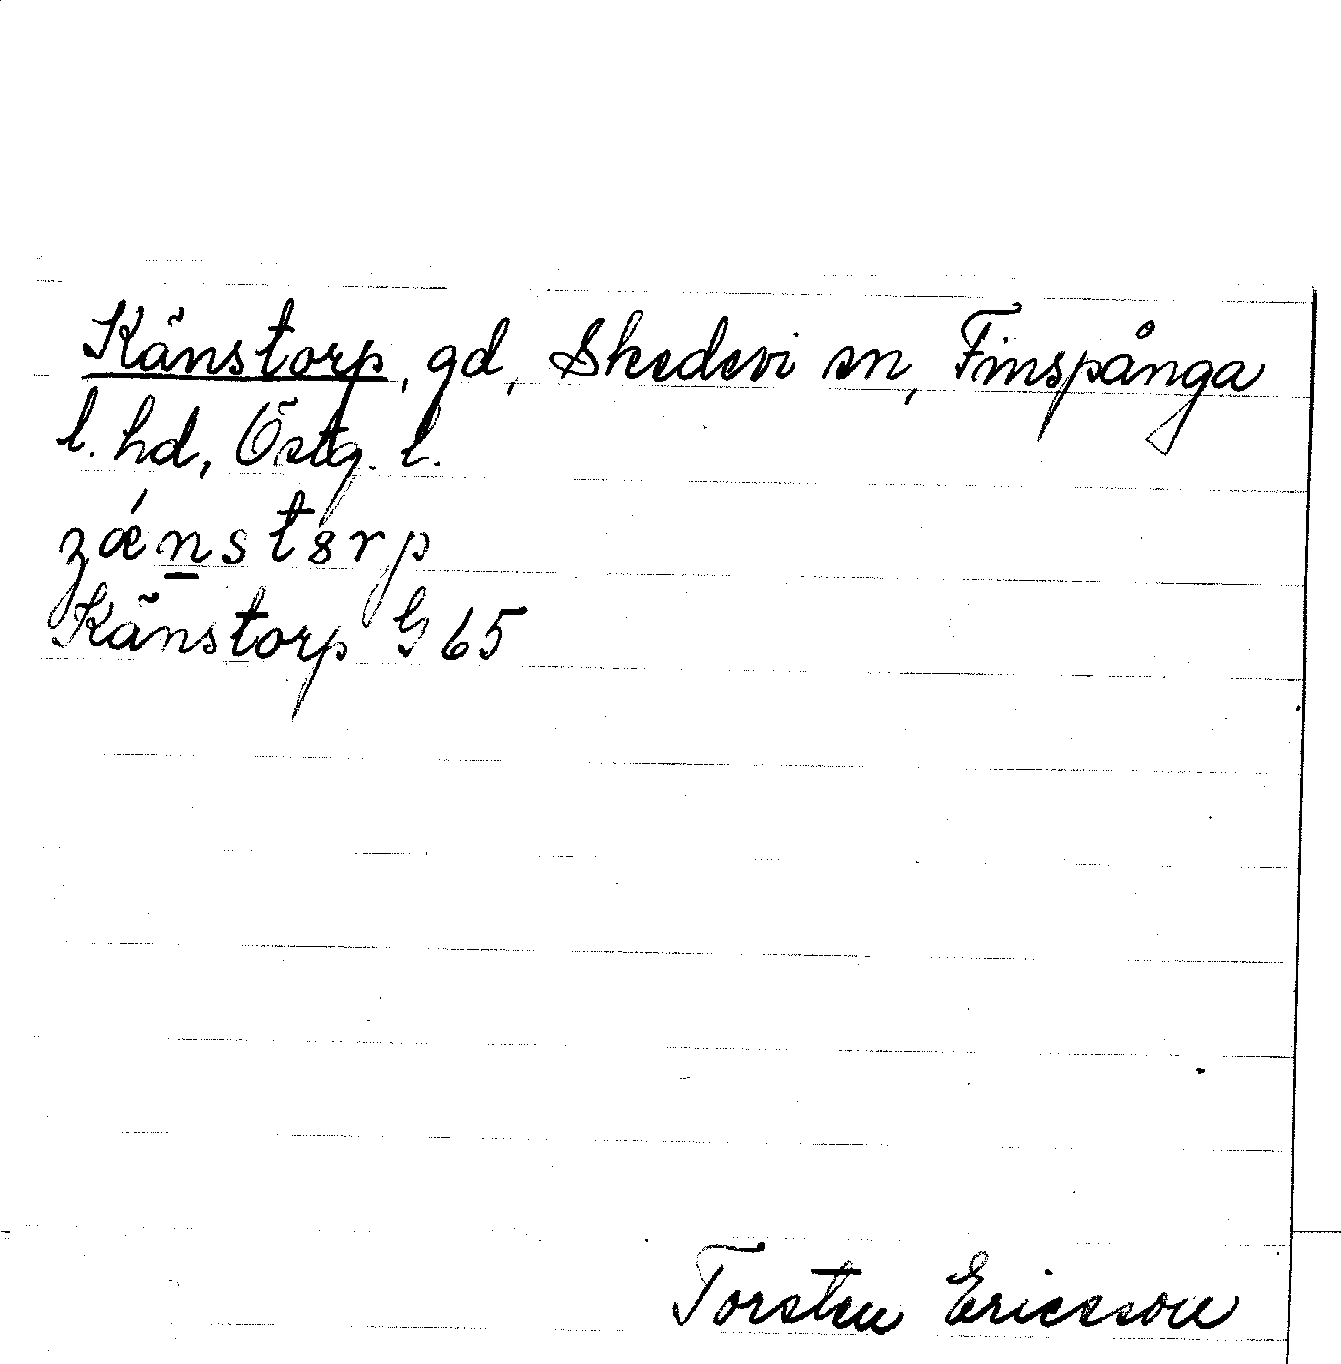 Känstorp, gd, Skedevi sn, Finspånga
l. hd, Östg. l.
Känstorp G 65
Torsten Ericsson